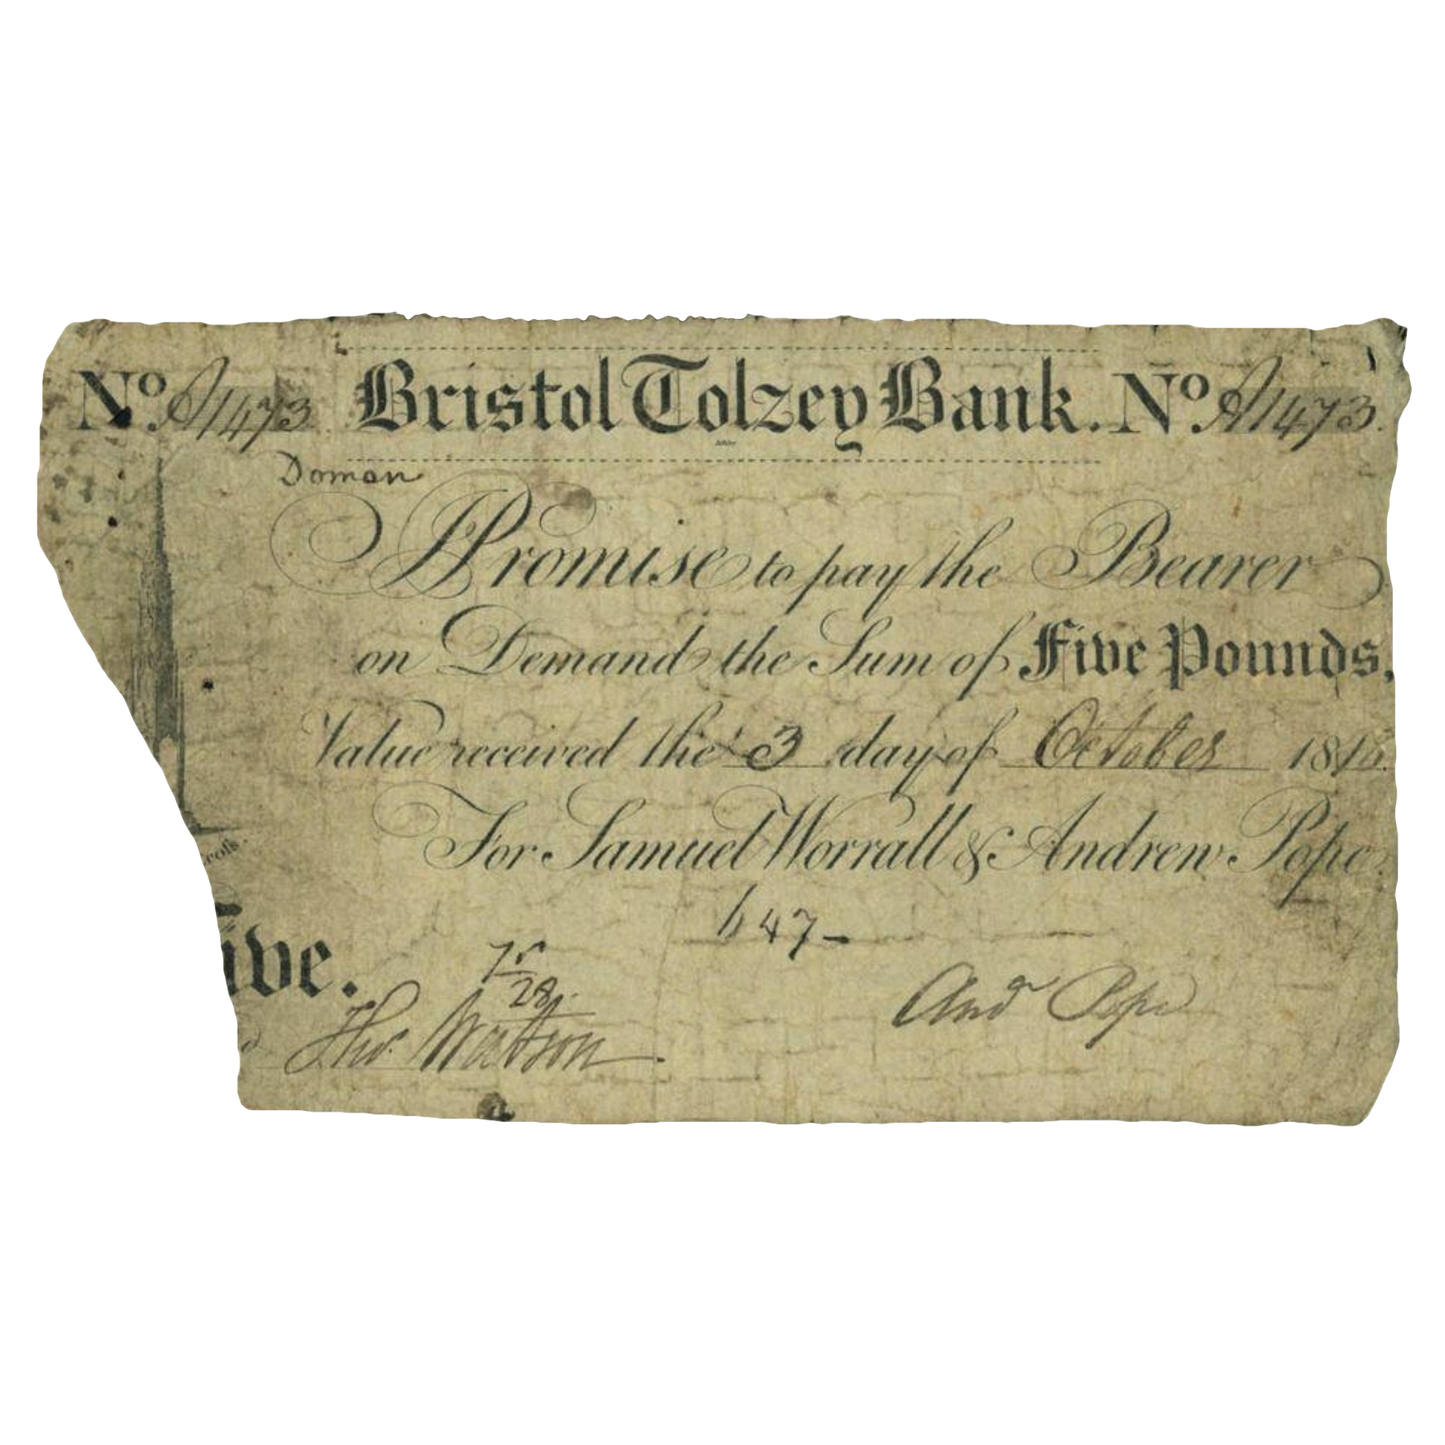 No. A1473 Bristol Tolzey Bank. No. A1473.
Doman
I Promise to pay the Bearer
on Demand the Sum of Five Pounds,
Value received the 3 day of October 181
For Samuel Worrall & Andrew Pope
47-
ive.
28
Thos. Watson
Andw Pope